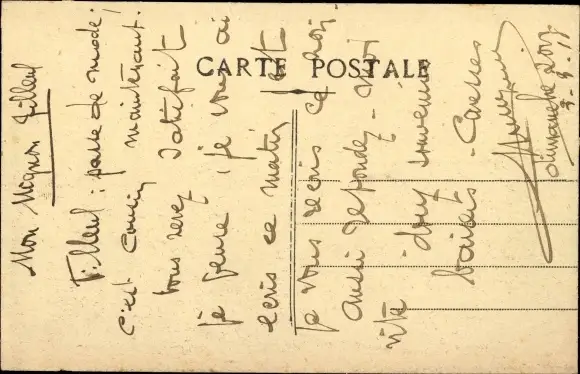 CARTE POSTALE
Mon Mignon Filleul
Filleul : passe de mode !
C'est Cousin maintenant.
Vous serez satisfait
je pense, je vous ai
écris ce matin et
je vous récris ce soir.
Aussi répondez-moi
vite
doux souvenirs
baisers - Caresses
Dimanche soir
3-3-18